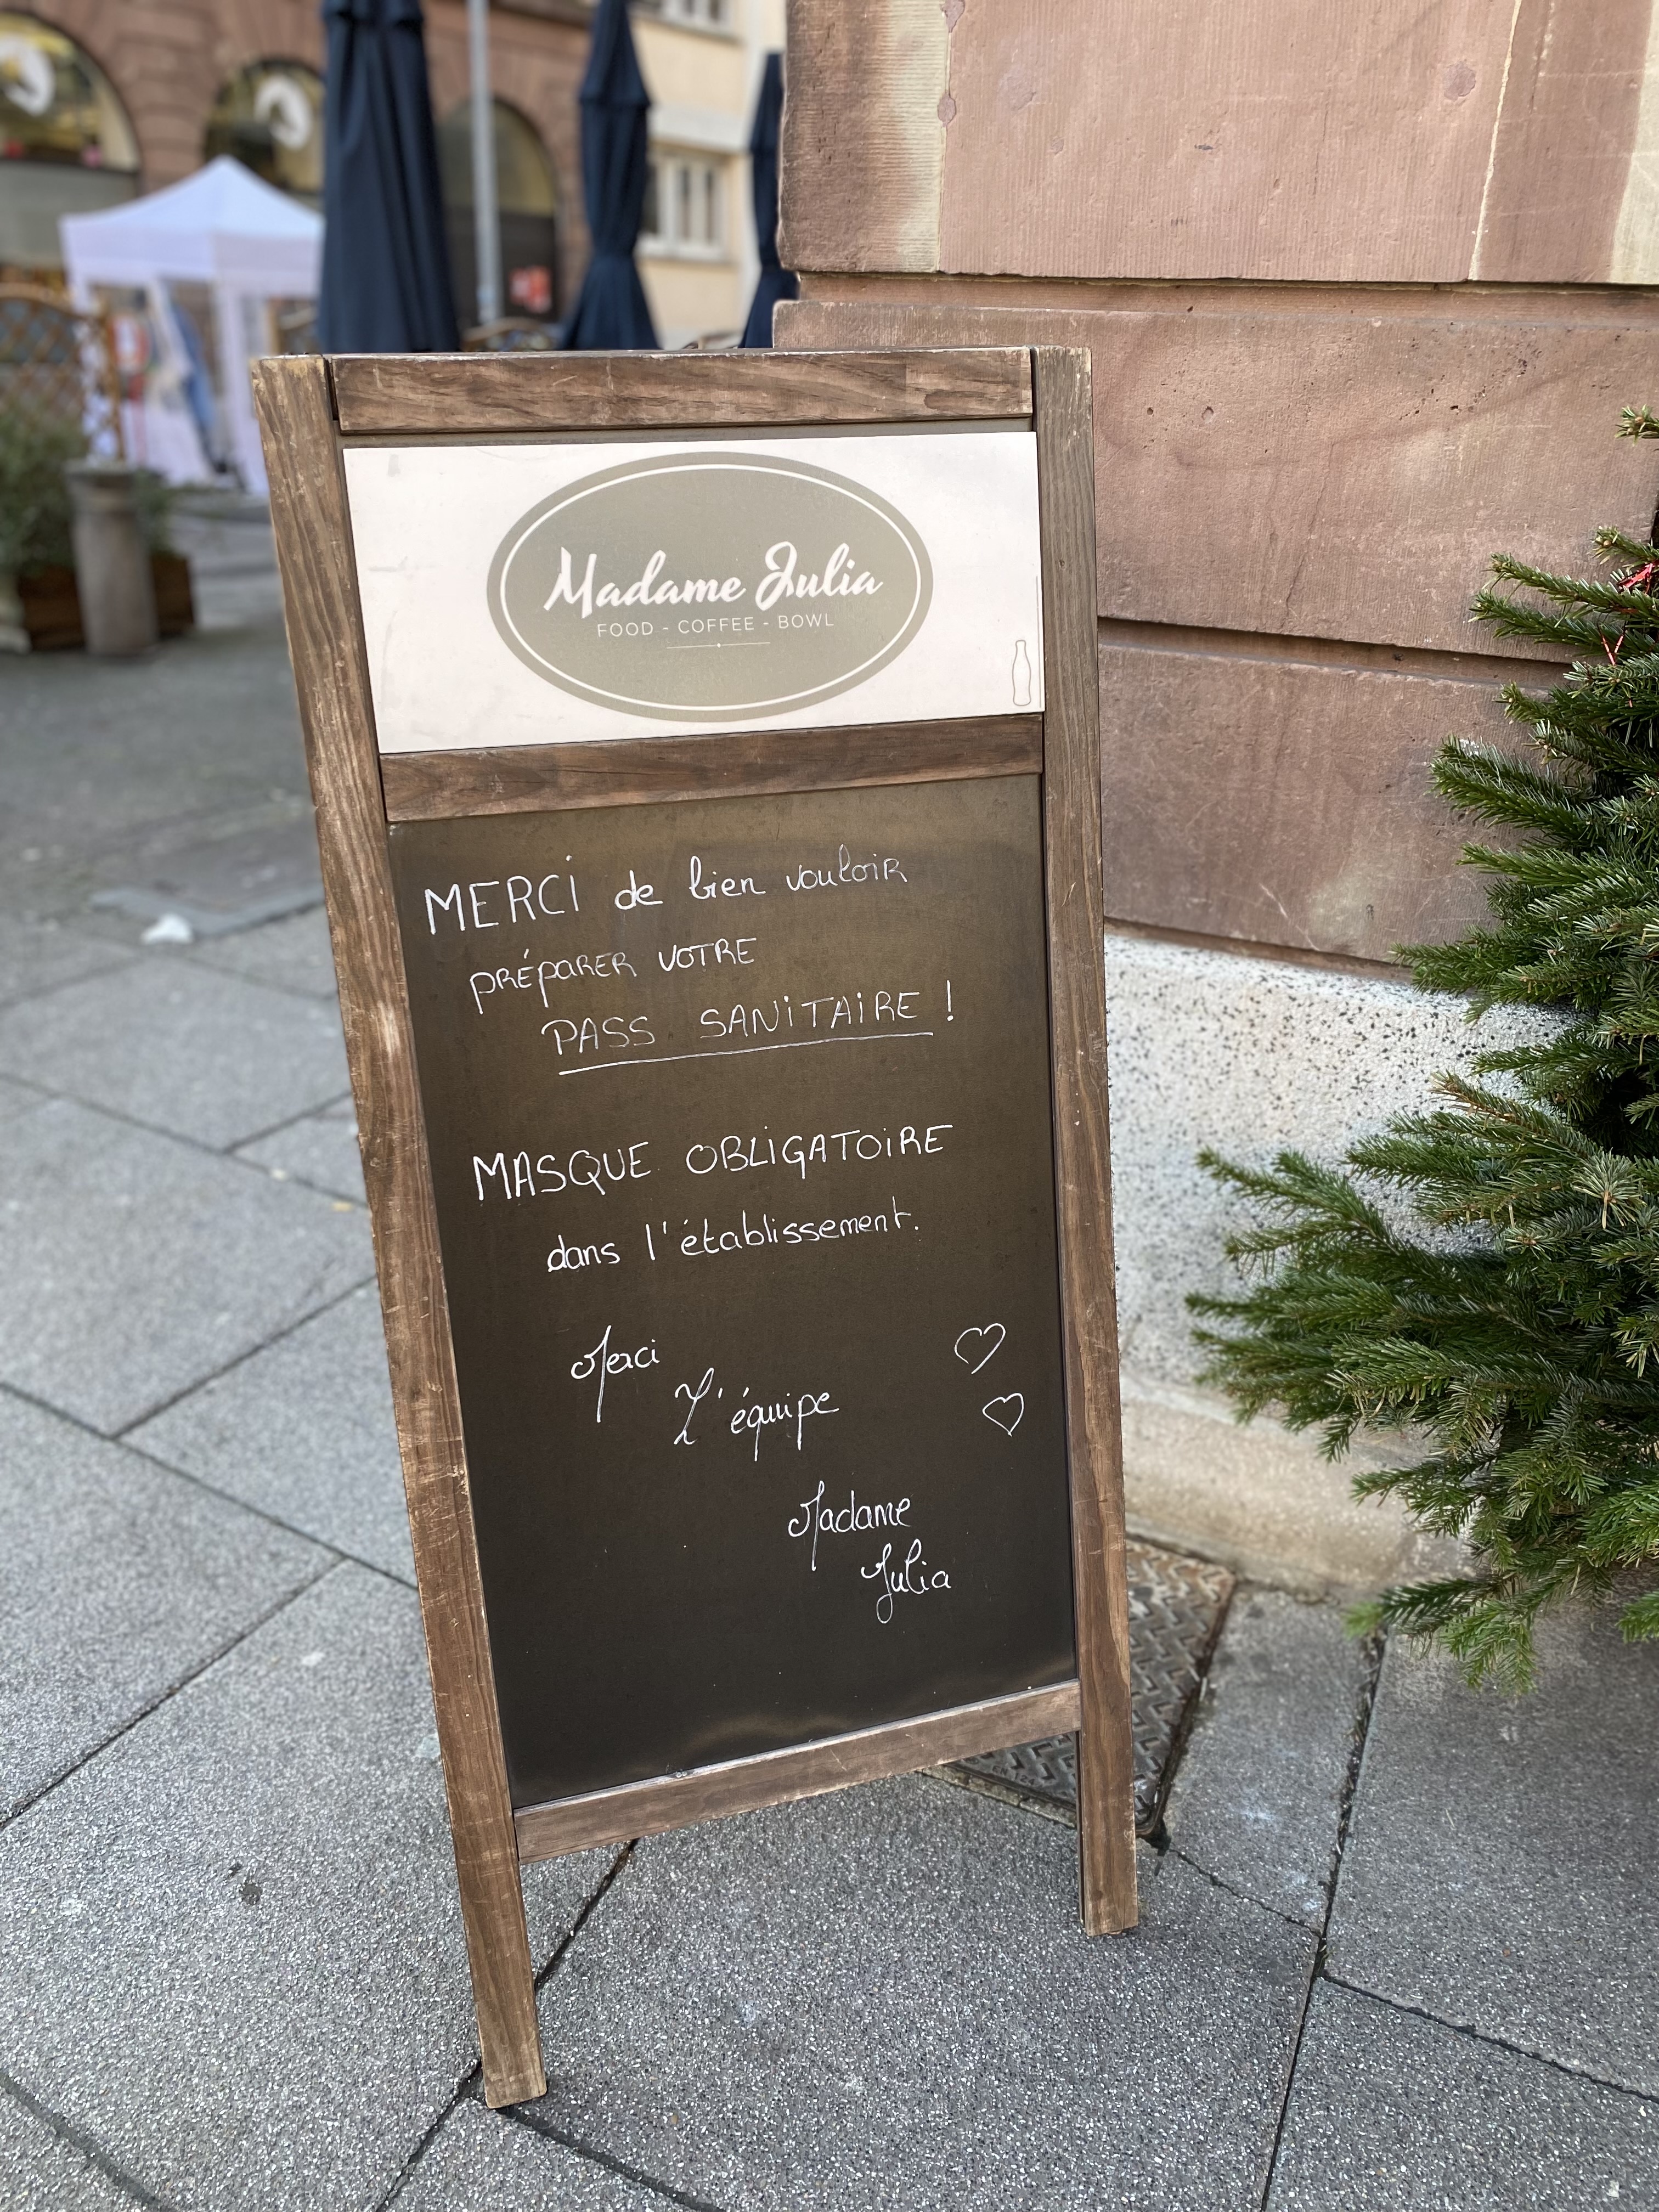 Madame Julia
FOOD - COFFEE - BOWL
MERCi de bien vouloir
PRÉPARER VOTRE
PASS SANiTAiRE !
MASQUE OBLiGATOiRE
dans l'établissement.
Merci
L'équipe
Madame
Julia